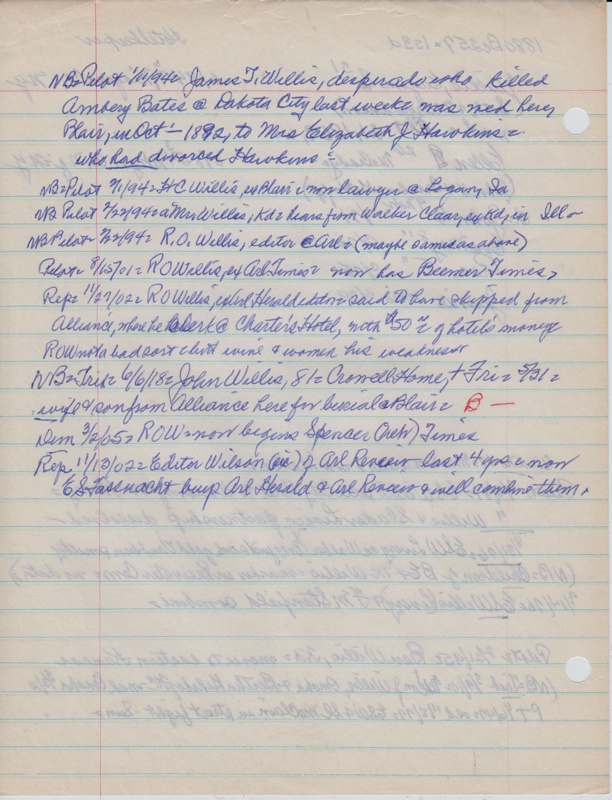 NB=Pilot 1/11/94= James T. Willis, desperado who killed
Ambery Bates @ Dakota City last week= was med here,
Blair, in Oct - 1892, to Mrs Elizabeth J. Hawkins=
who had divorced Hawkins=
NB=Pilot 2/1/94= H C Willis, ex Blair= now lawyer @ Logan, Ia
NB Pilot 2/22/94= a Mrs Willis, Kd= hears from Walker Claar, ex Kd, in Ill-
NB Pilot= 3/22/94= R.O. Willis, editor @ Arl= (maybe same as above)
Pilot= 8/15/01= R O Willis, ex Arl Times= now has Beemer Times,
Rep= 11/27/02= R O Willis, Herald editor= said to have skipped from
Alliance, where he clerk @ Charter's Hotel, with $50 of hotel's money
ROW not a bad sort but wine & women his weakness
NB=Trib= 6/6/18= John Willis, 81= Crowell Home, + Fri= 5/31=
wife & son from Alliance here for burial @ Blair= B —
Dem 3/2/05= ROW= now begins Spencer (Neb) Times
Rep= 11/13/02= Editor Wilson (sic) of Arl Review last 4 yrs= now
E S Fassnacht buys Arl Herald & Arl Review & will combine them.